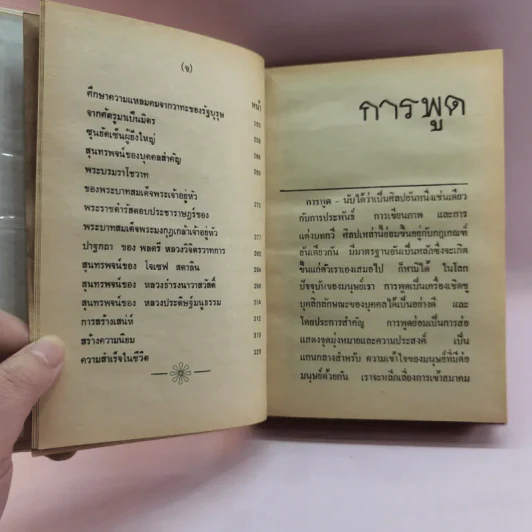 (ง)
หน้า
ศึกษาความแหลมคมจากวาทะของรัฐบุรุษ
จากศัตรูมาเป็นมิตร
ซุนยัดเซ็นผู้ยิ่งใหญ่
สุนทรพจน์ของบุคคลสำคัญ
พระบรมราโชวาท
ของพระบาทสมเด็จพระเจ้าอยู่หัว
พระราชดำรัสตอบประชาราษฎร์ของ
พระบาทสมเด็จพระมงกุฎเกล้าเจ้าอยู่หัว
ปาฐกถา ของ พลตรี หลวงวิจิตรวาทการ
สุนทรพจน์ของ โจเซฟ สตาลิน
สุนทรพจน์ของ หลวงธำรงนาวาสวัสดิ์
สุนทรพจน์ของ หลวงประดิษฐ์มนูธรรม
การสร้างเสน่ห์
สร้างความนิยม
ความสำเร็จในชีวิต 329
การพูด
การพูด - นับได้ว่าเป็นศิลปอันหนึ่งเช่นเดียว
กับการประพันธ์ การเขียนภาพ และการ
แต่งบทกวี ศิลปเหล่านี้ย่อมขึ้นอยู่กับกฎเกณฑ์
อันเดียวกัน มีมาตรฐานอันเป็นหลักซึ่งจะเกิด
ขึ้นแก่ตัวเราเองเสมอไป ก็หามิได้ ในโลก
ปัจจุบันของมนุษย์เรา การพูดเป็นเครื่องเชิดชู
บุคลิกลักษณะของบุคคลได้เป็นอย่างดี และ
โดยประการสำคัญ การพูดย่อมเป็นการส่อ
แสดงจุดมุ่งหมายและความประสงค์ เป็น
แกนกลางสำหรับ ความเข้าใจของมนุษย์ที่มีต่อ
มนุษย์ด้วยกัน เราจะหลีกเลี่ยงการเข้าสมาคม